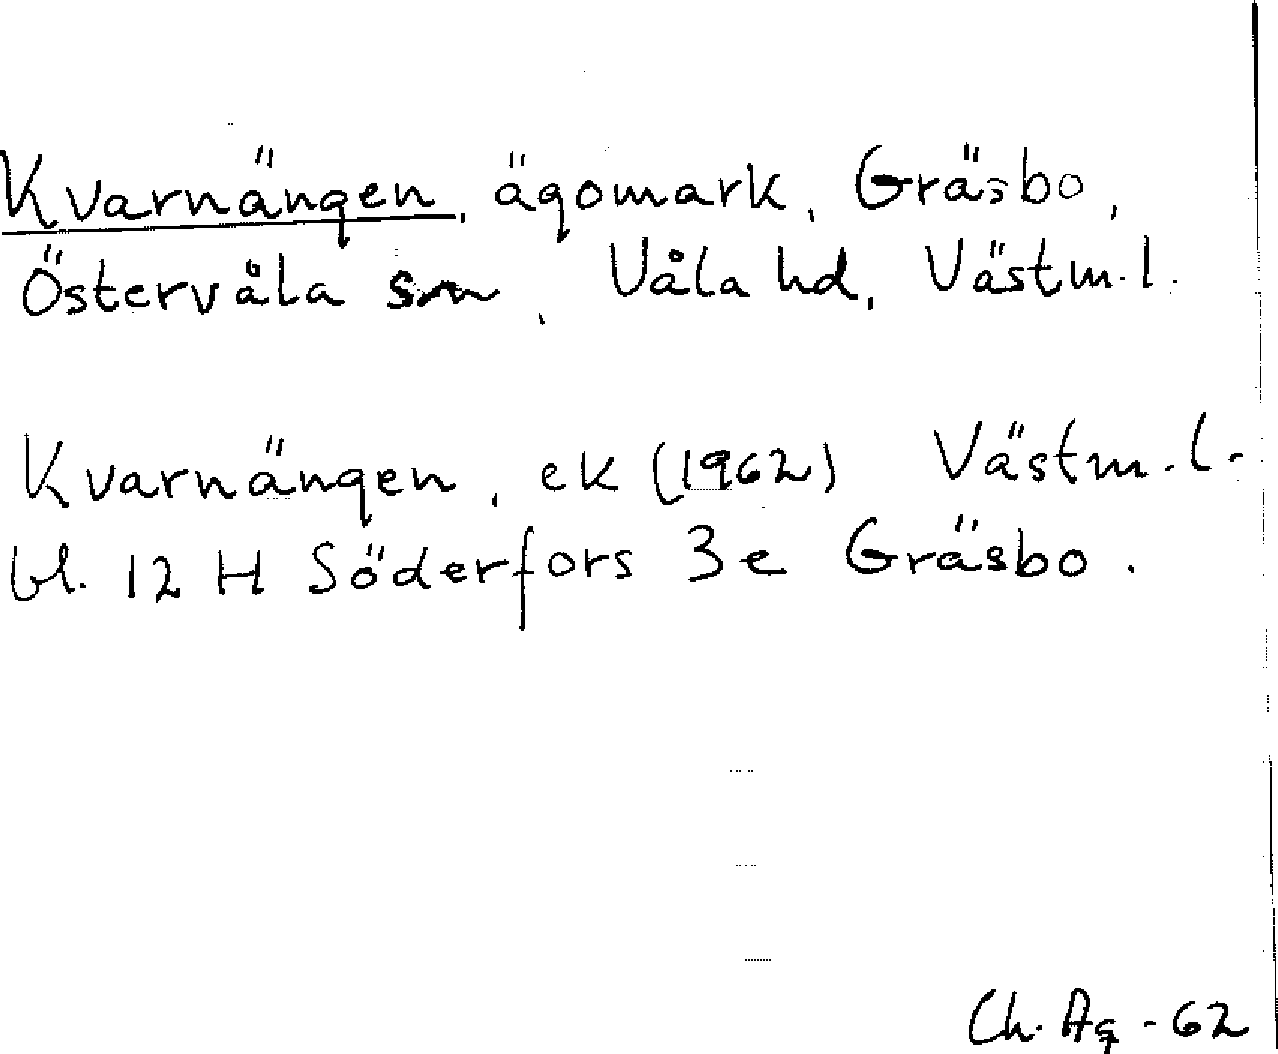 Kvarnängen, ägomark, Gräsbo,
Östervåla sn, Våla hd, Västm.l.
Kvarnängen, ek (1962) Västm.l.
bl. 12 H Söderfors 3e Gräsbo.
Ch. Ag -62